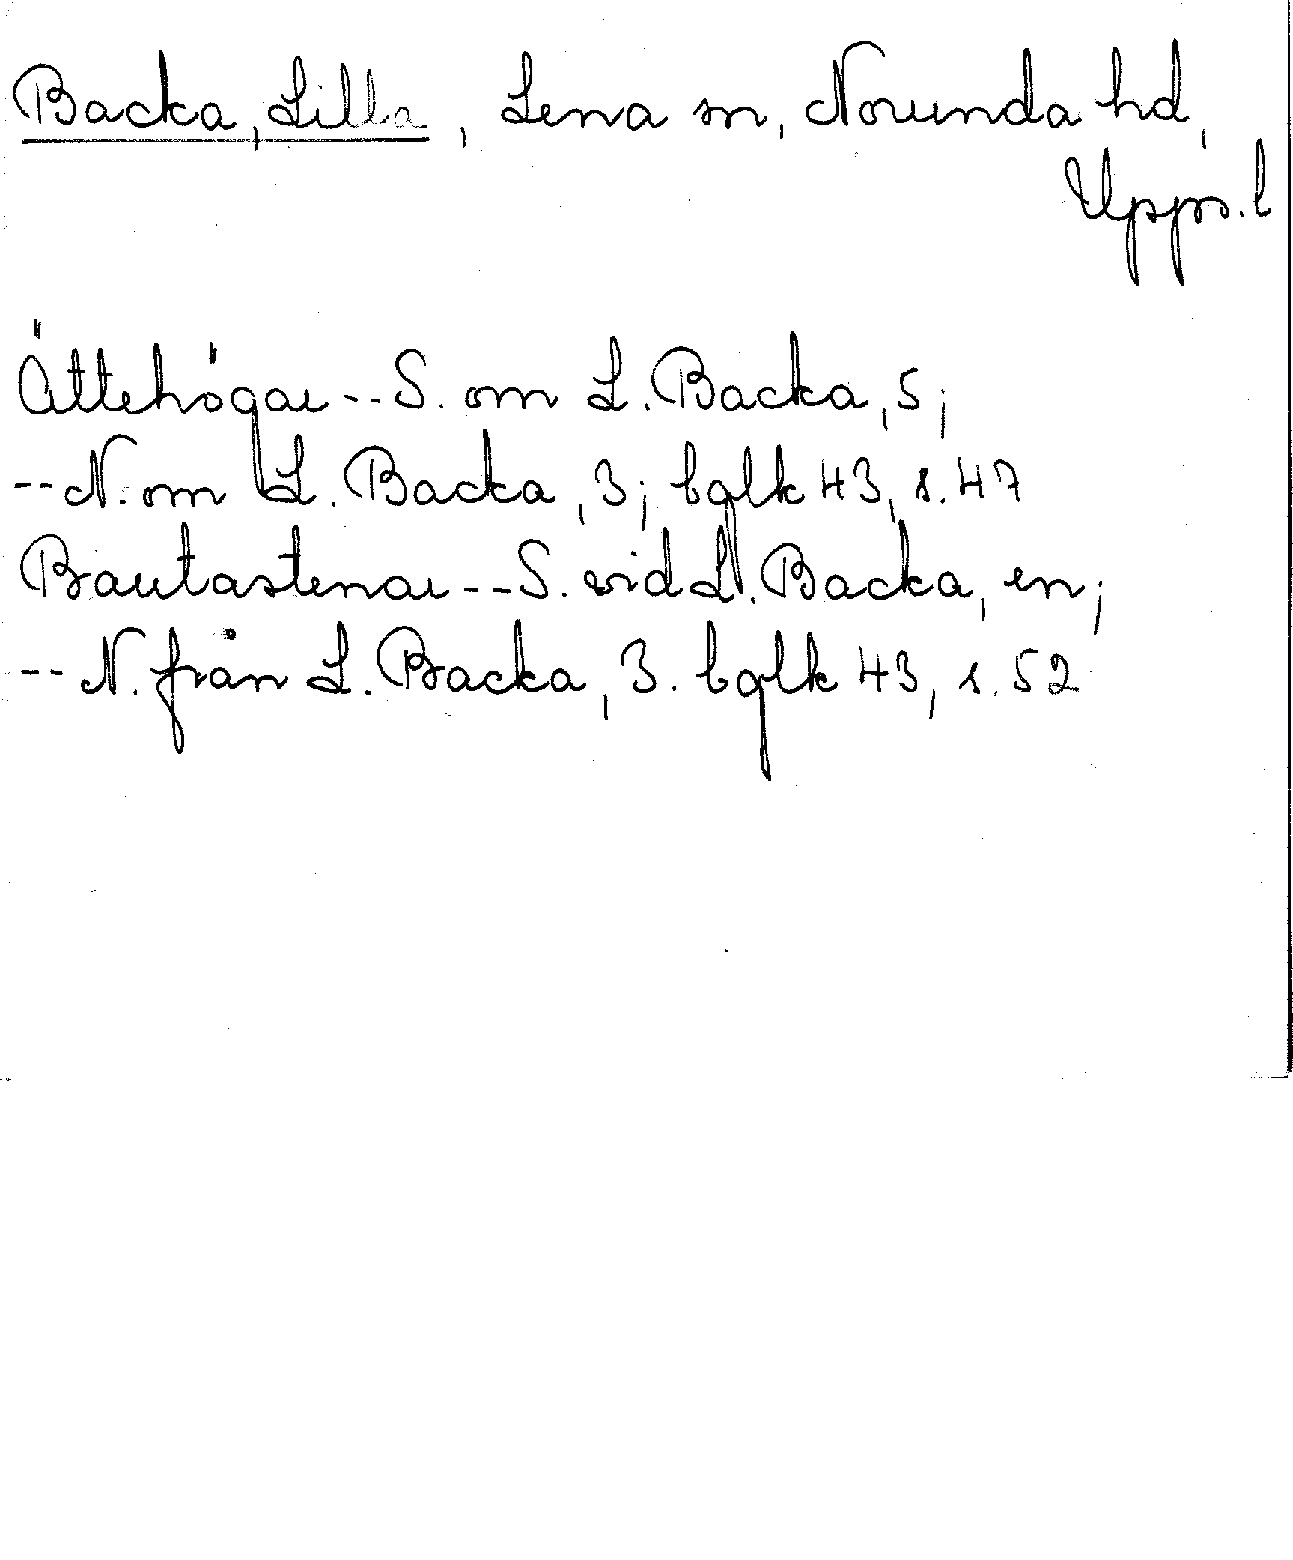 Backa, Lilla, Lena sn, Norunda hd,
Upps. l
Ättehögar -- S. om L. Backa, 5;
-- N. om L. Backa, 3; bglk 43, s. 47
Bautastenar -- S. vid L. Backa, en;
-- N. från L. Backa, 3. bglk 43, s. 52